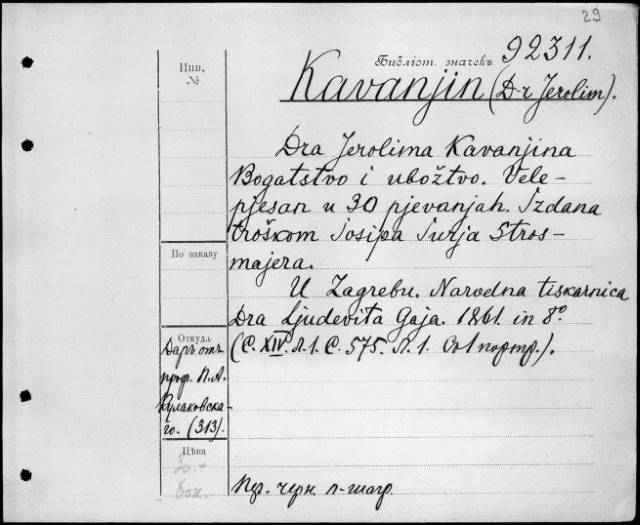 29
Инв.
№
Библіот. значекъ 92311.
Kavanjin (D-r Jerolim).
Dra Jerolima Kavanjina
Bogatstvo i ubožtvo. Vele-
pjesan u 30 pjevanjah. Izdana
troškom Josipa Jurja Stros-
majera.
По заказу
U Zagrebu. Narodna tiskarnica
Dra Ljudevita Gaja. 1861. in 8º
(С. XIV. л. 1. С. 575. Л. 1. Со 1 портр.).
Откуда
Даръ отъ
проф. П. А.
Кулаковска-
го. (313).
Цѣна
Пер. черн. п-шагр.